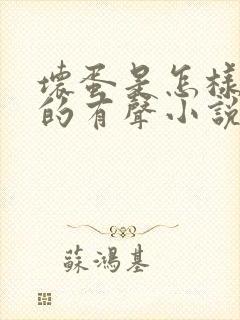 壞蛋是怎樣
的有聲小說
蘇鴻基